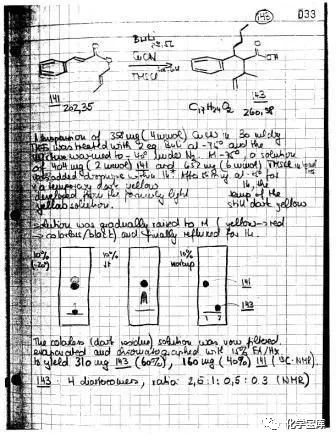 142 033
BuLi
CuCN
TMSCl
141
202,35
143
C17H24O2 260,38
A suspension of 358 mg (4 mmol) CuCN in 30 ml dry
was treated with 2 eq. BuLi at -78° and the
mixture was warmed to -40° under N2. At -78°, a solution
of 404 mg (2 mmol) 141 and 652 mg (6 mmol) TMSCl in
was added dropwise within After at -78° for
a temporary dark yellow 1h, the
developed from the formerly light temp. of the
yellow solution. still dark yellow
solution was gradually raised to rt (yellow → red
→ colorless/black) and finally refluxed for 1h.
10% 10% 10%
(-20°) rt workup
141
143
1 2
The colorless (dark residue) solution was now filtered,
evaporated and chromatographed with 15% EA/Hx
to yield 310 mg 143 (60%), 160 mg (40%) 141 (13C-NMR).
143: 4 diastereomers, ratio: 2,5:1:0,5:0.3 (NMR)
化学宝库